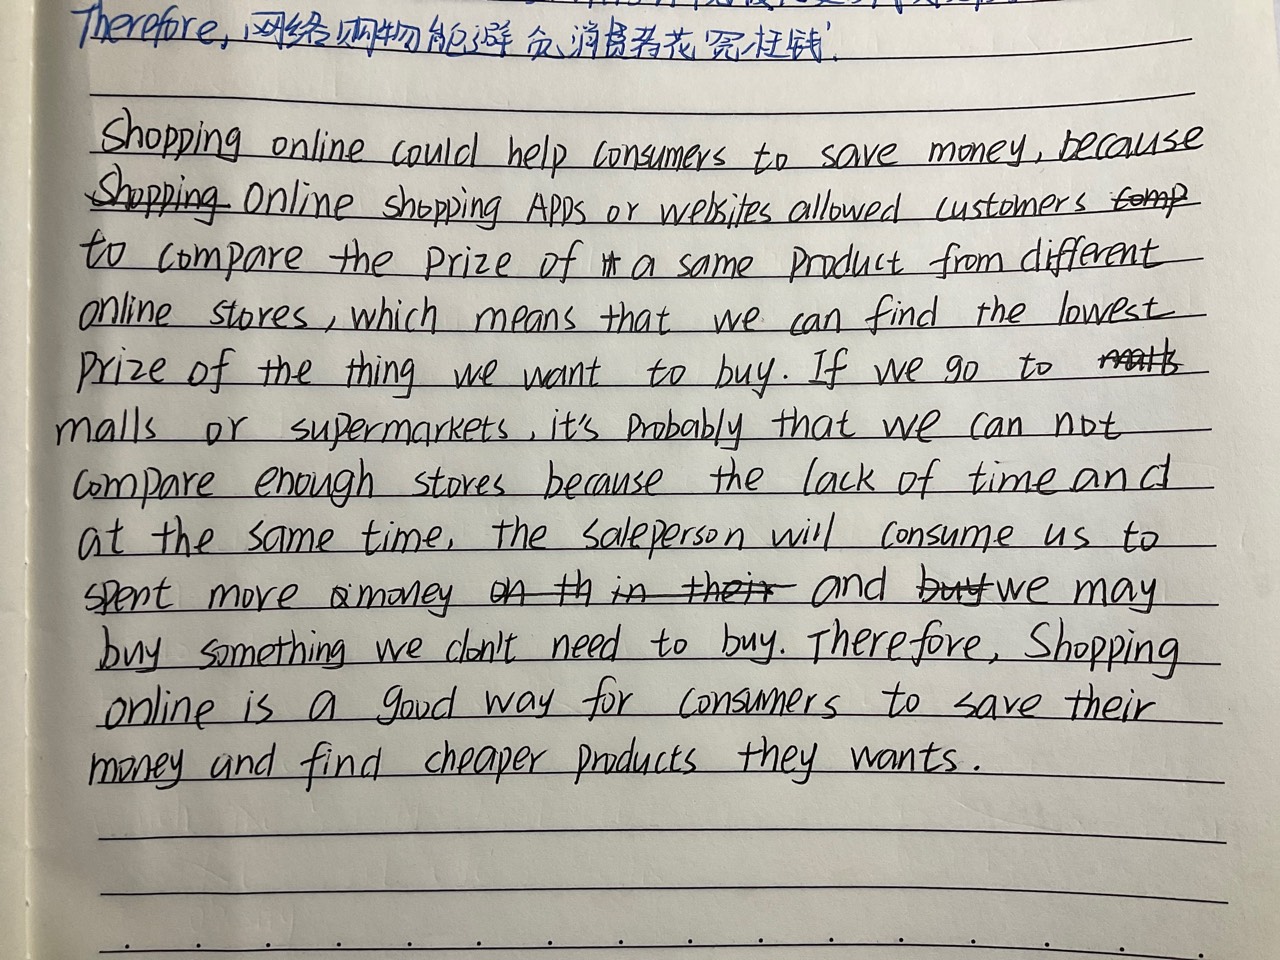 Therefore, 网络购物能避免消费者花冤枉钱.
Shopping online could help consumers to save money, because
Shopping Online shopping APPs or websites allowed customers comp
to compare the prize of a same product from different
online stores, which means that we can find the lowest
prize of the thing we want to buy. If we go to malls
malls or supermarkets, it's probably that we can not
compare enough stores because the lack of time and
at the same time, the saleperson will consume us to
spent more money on th in their and buy we may
buy something we don't need to buy. Therefore, Shopping
online is a good way for consumers to save their
money and find cheaper products they wants.